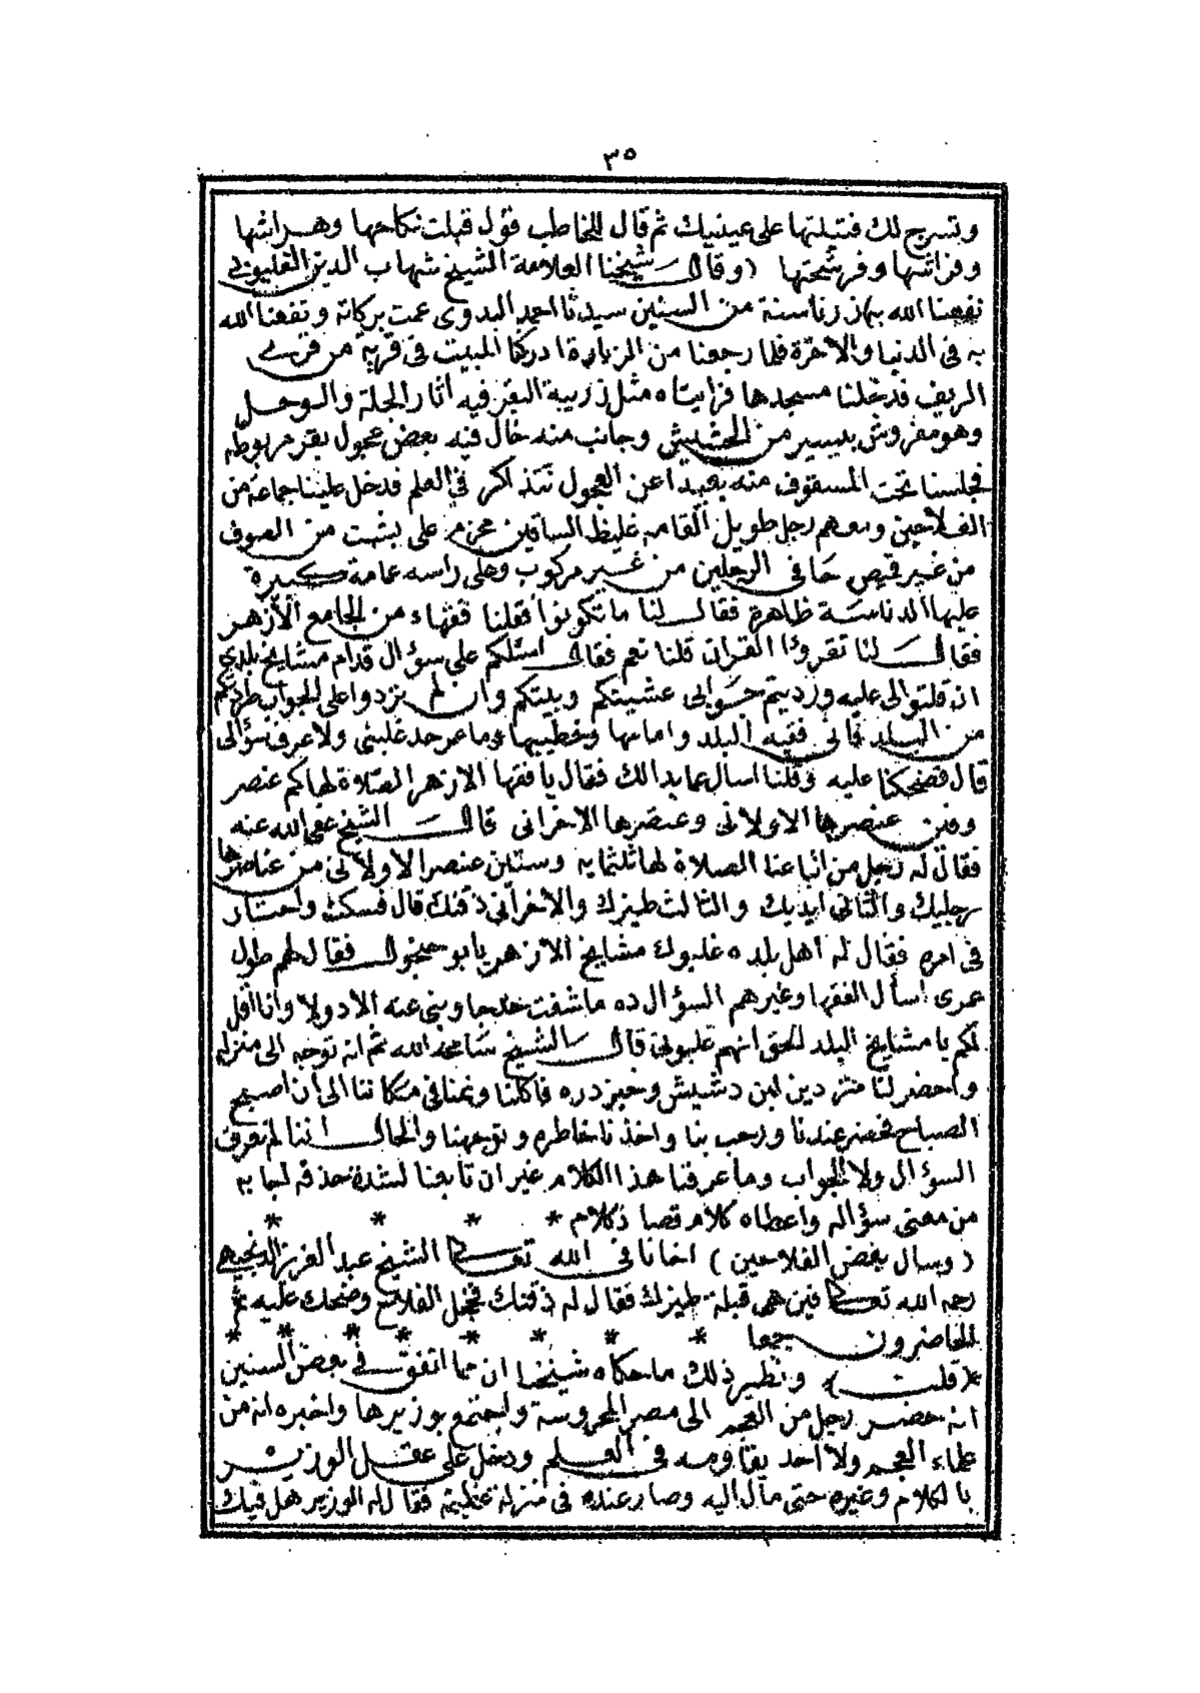 ٣٥
وتسرج لك فتيلتها على عينيك ثم قال للخاطب قول قبلت نكاحها وهراشها
وفراشها وفرشحتها (وقال شيخنا العلامة الشيخ شهاب الدين القليوبى
نفعنا الله به) زرنا سنة من السنين سيدنا احمد البدوى عمت بركاته ونفعنا الله
به فى الدنيا والاخرة فلما رجعنا من الزيارة ادركنا المبيت فى قرية من قرى
الريف فدخلنا مسجدها فرايناه مثل زريبة البقر فيه اثار الجلة والوحل
وهو مفروش بيسير من الحشيش وجانب منه خال فيه بعض عجول بقر مربوطه
فجلسنا تحت المسقوف منه بعيدا عن العجول نتذاكر فى العلم فدخل علينا جماعة من
الفلاحين ومعهم رجل طويل القامه غليظ الساقين محزم على بشت من الصوف
من غير قميص حافى الرجلين من غير مركوب وعلى راسه عمامة كبيرة
عليها الدناسة ظاهرة فقال لنا ما تكونوا فقلنا فقهاء من الجامع الازهر
فقال لنا تقروا القران قلنا نعم فقال اسئلكم على سؤال قدام مشايخ بلدى
ان قلتو الى عليه ورديتم جوابى عشيتكم وبيتكم وان لم تردوا على الجواب طردتكم
من البلد فانى فقيه البلد وامامها وخطيبها وما عمر حد غلبنى ولا عرف سؤالى
قال فضحكنا عليه وقلنا اسال عما بدالك فقال يا فقها الازهر الصلاة لها كم عنصر
وفين عنصرها الاولانى وعنصرها الاخرانى قال الشيخ عفى الله عنه
فقال له رجل من اتباعنا الصلاة لها ثلثمايه وستين عنصر الاولانى من عناصرها
رجليك والتانى ايديك والتالت طيزك والاخرانى ذقنك قال فسكت واحتار
فى امره فقال له اهل بلده غلبوك مشايخ الازهر يابو جنجول فقال لهم طول
عمرى اسأل الفقها وغيرهم السؤال ده ما شفت حد جاوبنى عنه الا دولا وانا اقل
لكم يا مشايخ البلد الحق انهم غلبونى قال الشيخ سامحه الله ثم انه توجه الى منزله
واحضر لنا متردين لبن دشيش وخبز دره فاكلنا ونمنا فى مكاننا الى ان اصبح
الصباح فحضر عندنا ورحب بنا واخذنا خاطره وتوجهنا والحال اننا لم نعرف
السؤال ولا الجواب وما عرفنا هذا الكلام غير ان تابعنا لشدة حذقه اجابه
من معنى سؤاله واعطاه كلام قصاد كلام * * * *
(وسال بعض الفلاحين) اخانا فى الله تعالى الشيخ عبد العزيز الدنجيهى
رحمه الله تعالى فين هى قبلة طيزك فقال له ذقنك فخجل الفلاح وضحك عليه
الحاضرون جميعا * * * * * * * *
(قلت) ونظير ذلك ما حكاه شيخنا ان مما اتفق فى بعض السنين
انه حضر رجل من العجم الى مصر المحروسة واجتمع بوزيرها واخبره انه من
علماء العجم ولا احد يقاومه فى العلم ودخل على عقل الوزير
بالكلام وغيره حتى مال اليه وصار عنده فى منزلة عظيمة فقال له الوزير هل فيك